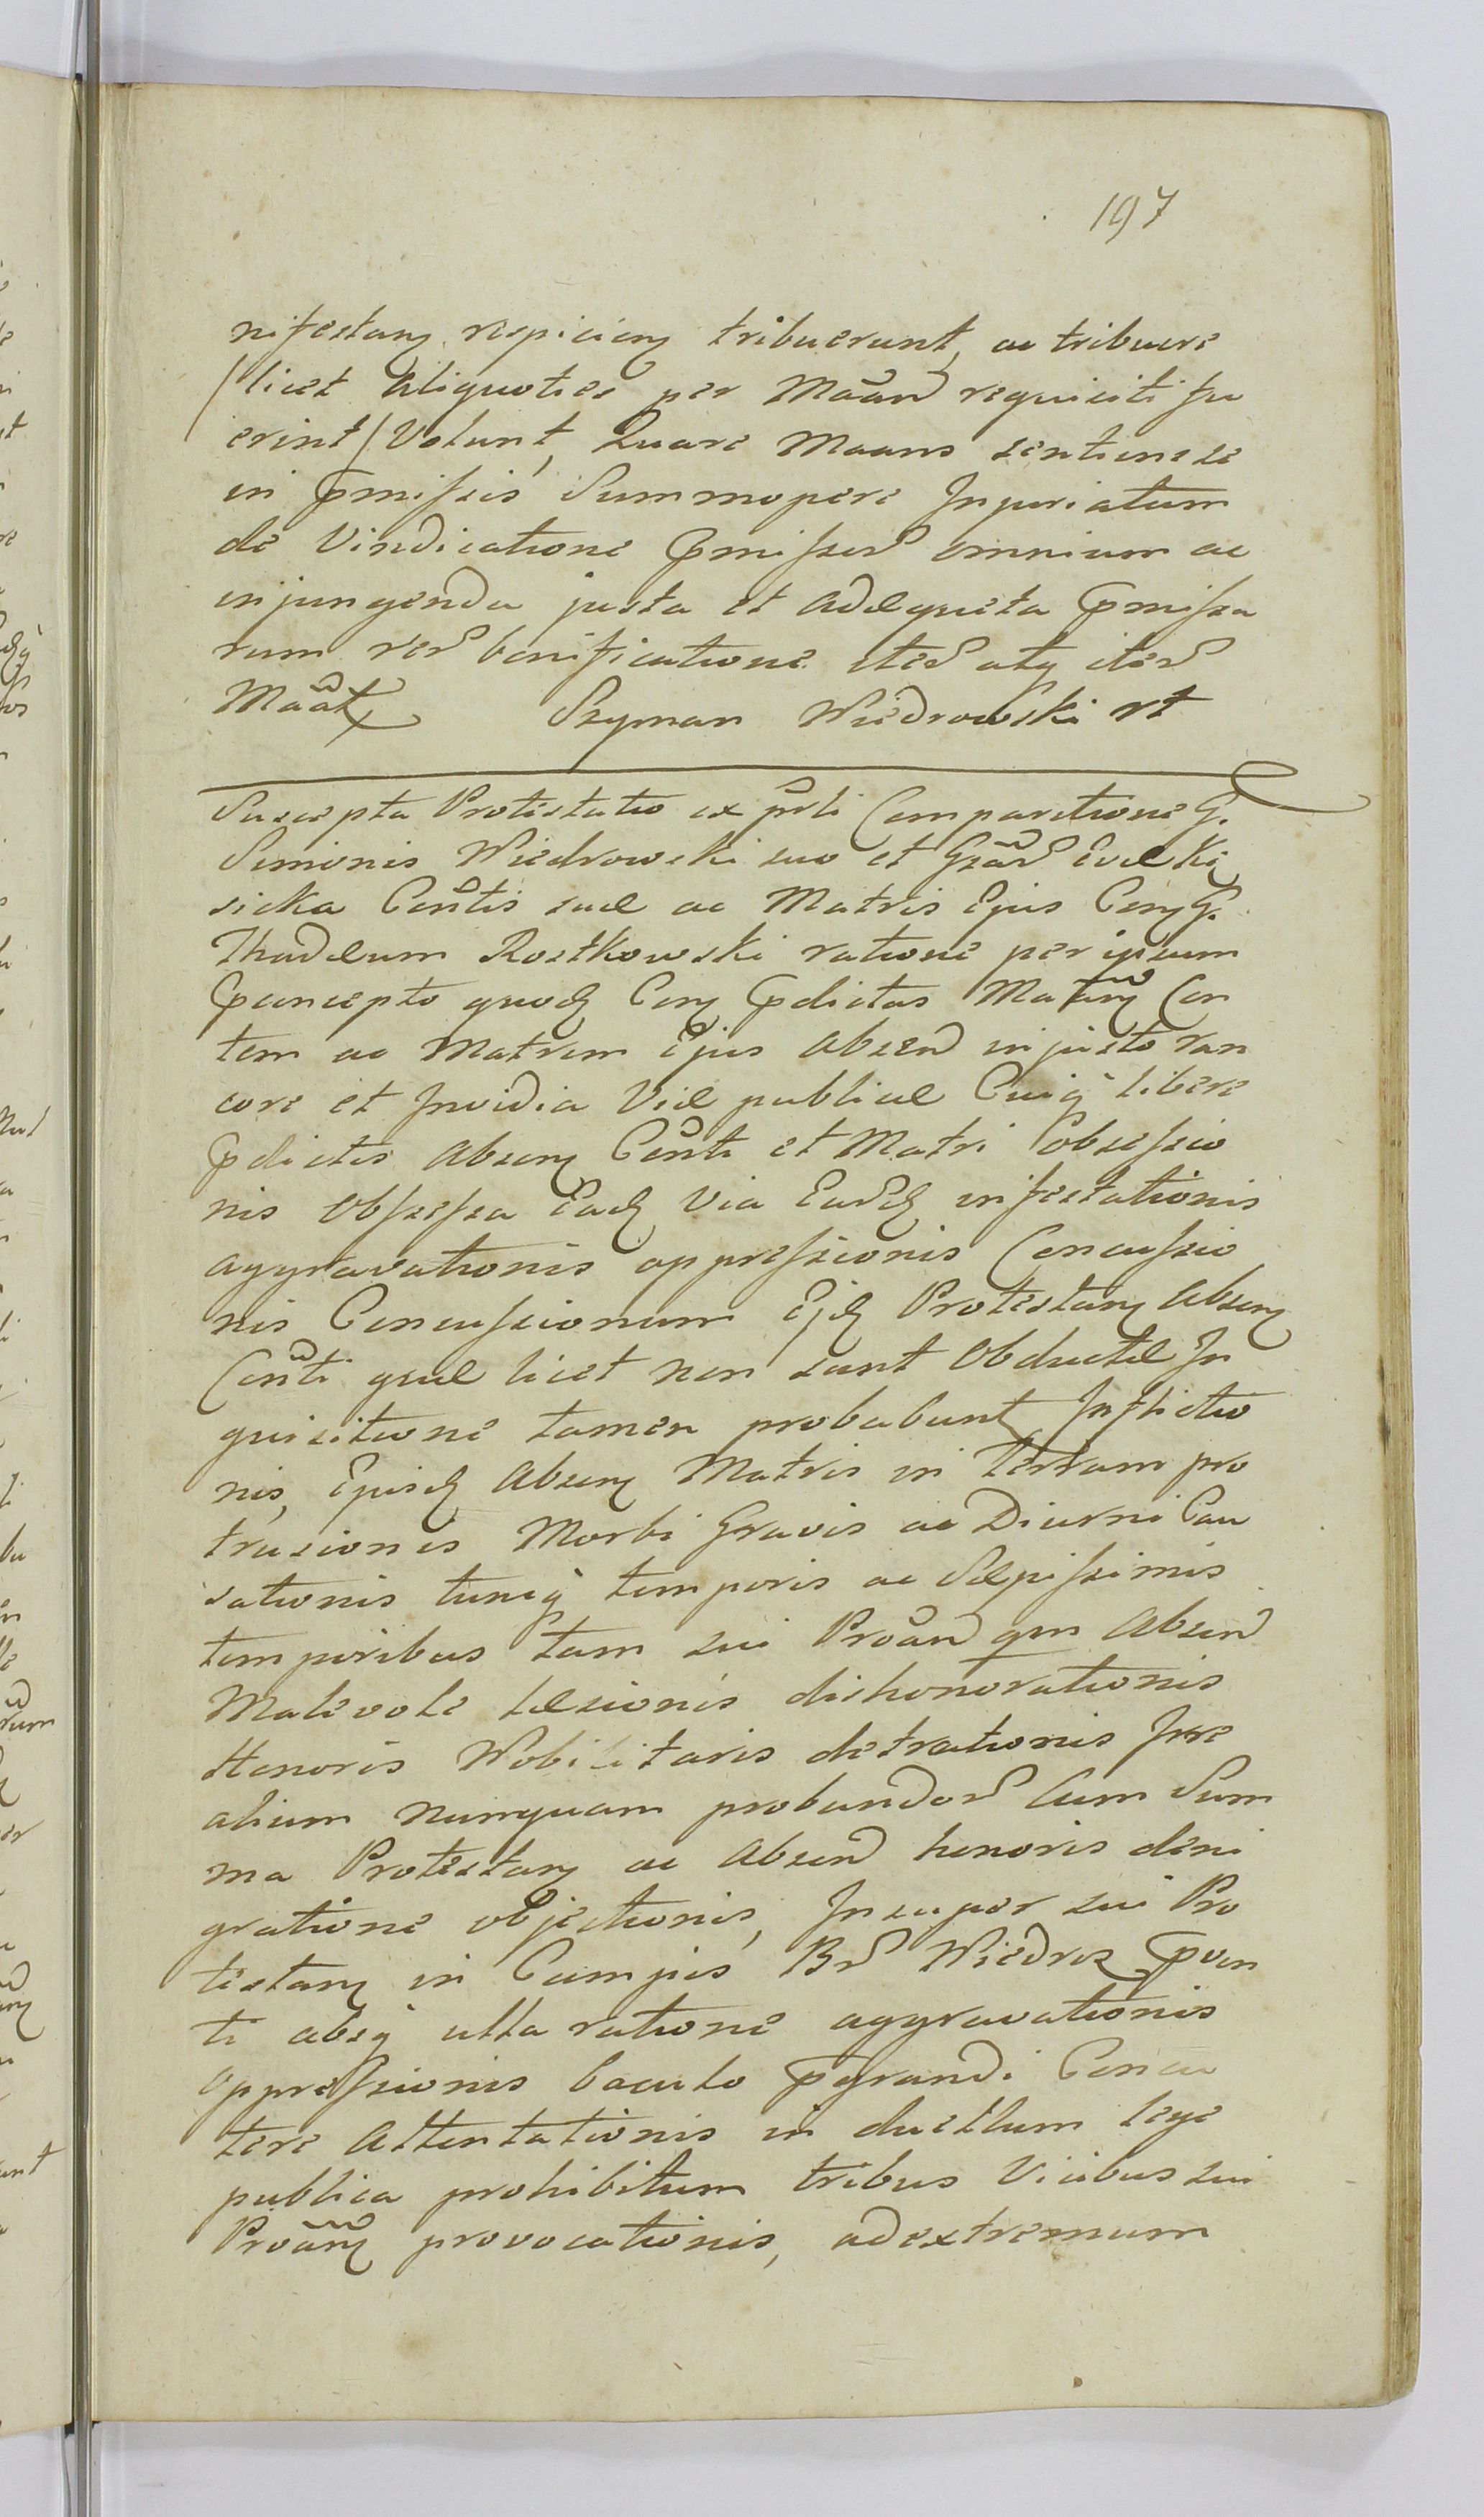 197
nifestanͫ respicienͫ tribuerunt, ac tribuere
/licet aliquoties per Maãnd requisiti fu
erint/ Volunt, Quare Maans sentiens se
in pmissis Summopere Injuriatum
de Vindicatione pmissor omnium ac
injungenda justa et adæqueta pmissa
rum rer bonificatione iter atq iter
Maãt Szyman Wiedrowski rt
Suscepta Protestatio ex prli Comparitione G.
Simonis Wiedrowski suo et Gsar Evæ
sicka Contis suæ ac Matris Ejus G.
Thadæum Rostkowski ratione per ipsum
quod pdictas Con
tem ac Matrem Ejus absen injusto ran
core et Invidia Viæ publicæ Cuiq libere
pdictis absen Conti et Matri obsessio
nis obsessa Ead Via infestationis
aggravationis oppressionis Concussio
nis Concussionum Ejd Protestan absen
Conti quæ licet non sunt obductæ In
quisitione tamen probabunt Inflictio
nis, Ejusd absen Matris in Terram pro
trusionis Morbi Gravis ac Diurni Cau
sationis tuniq temporis ac Sæpissimis
temporibus tam sui Proãn qm absen
Malevole læsionis dishonorationis
Honoris Nobilitaris detrationis Jure
alium nunquam probandor Cum Sum
ma Protestan ac absen honoris deni
gratione objectionis, Insuper sui Pro
testan in Campis Br Wiedrz pven
ti absq ulla ratione aggravationis
oppressionis baculo pgrandi Concu
tere attentationis in duellum lege
publica prohibitum tribus Vicibus sui
Proãn provocationis, ad extremum